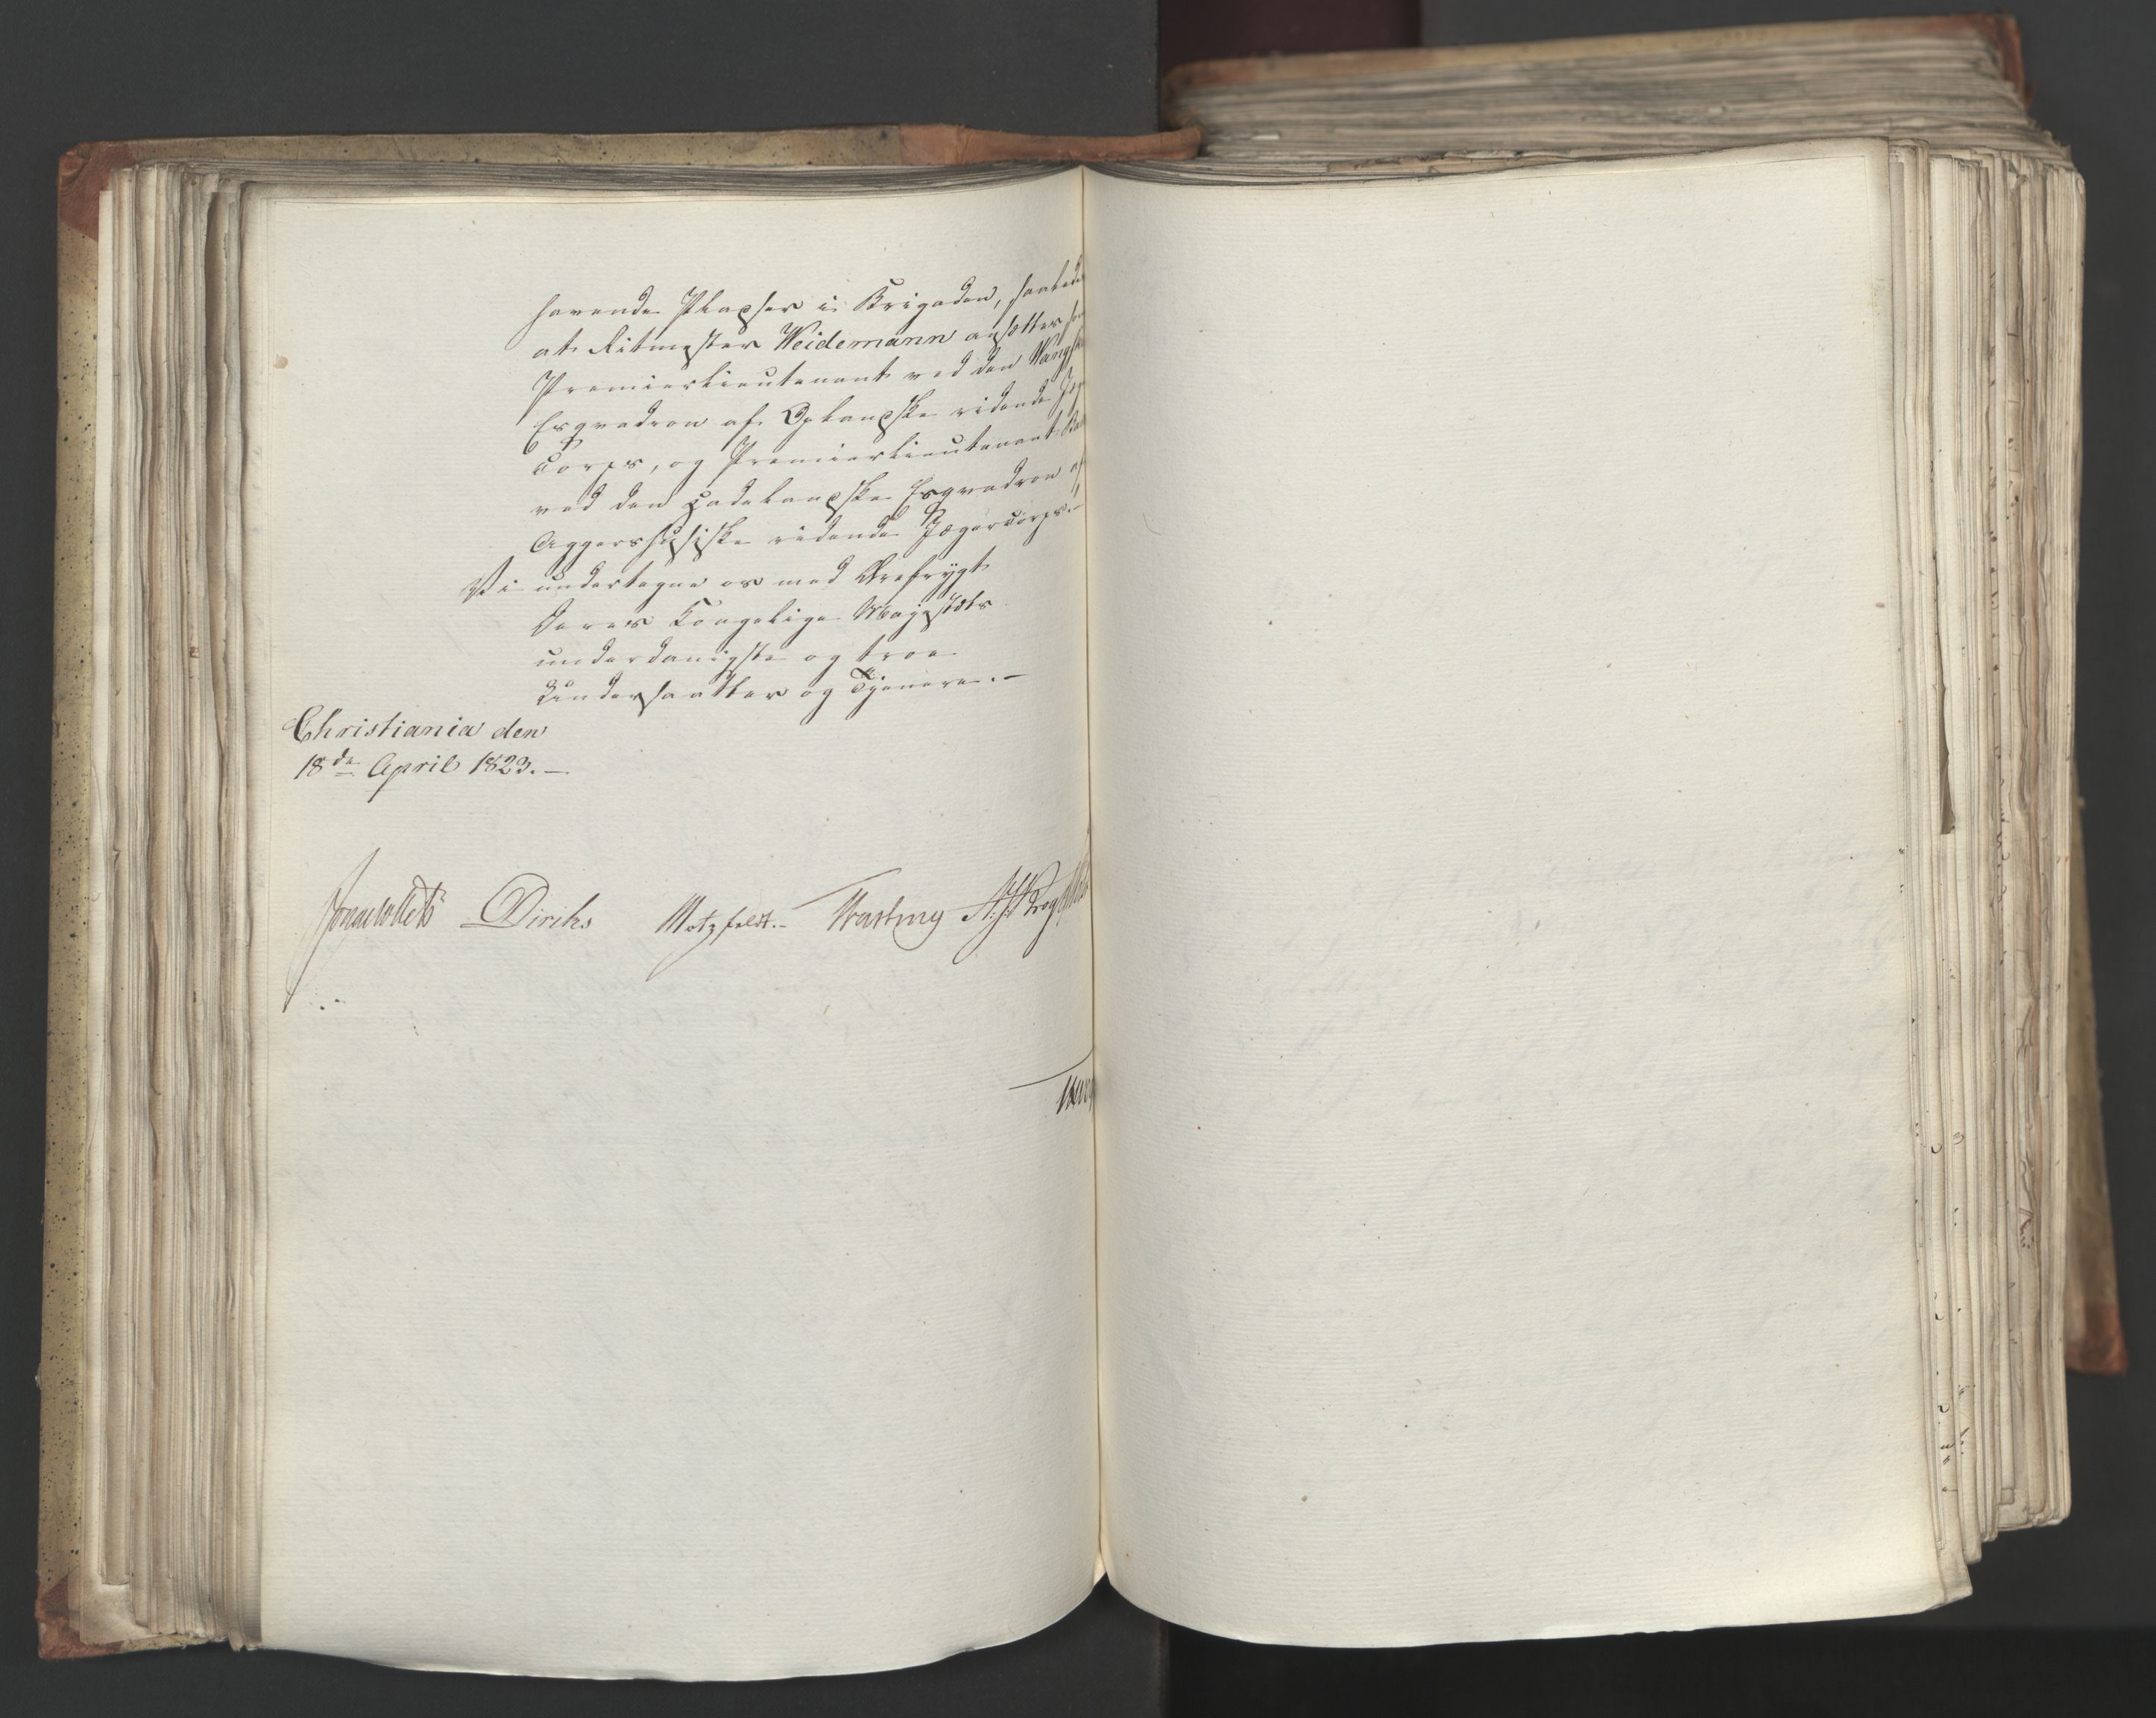 havende Pladser i Brigaden, saaledes
at Ritmester Weidemann ansættes som
Premierlieutenant ved den Vangske
Esqvadron af Oplandske ridende Jæger
Corps, og Premierlieutenant
ved den Hadelandske Esqvadron af
Aggershusiske ridende Jægercorps.-
Vi undertegne os med Ærefrygt
Deres Kongelige Majestæts
underdanigste og troe
Undersaatter og Tjenere.-
Christiania den
18de April 1823.-
Jonas Collett Diriks Motzfeldt.- Krog